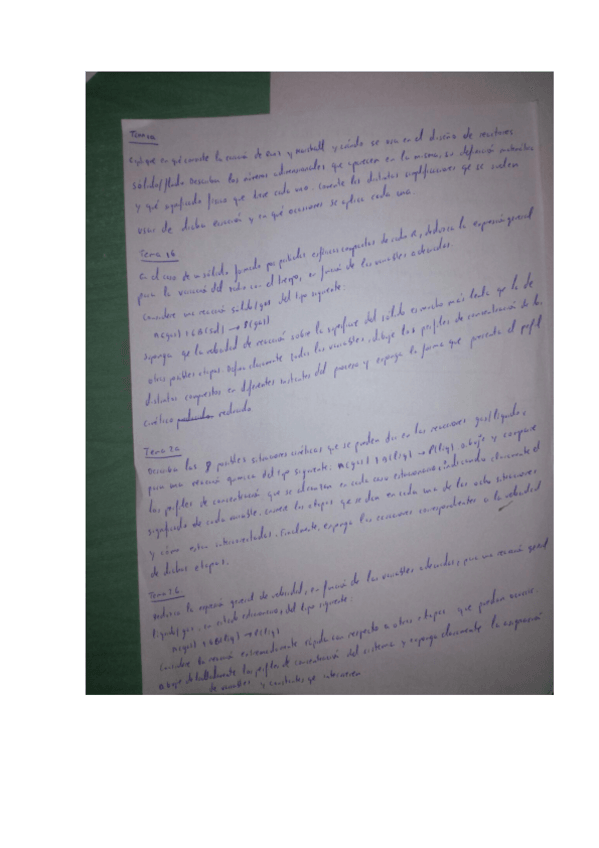 Tema 1a
Explique en qué consiste la ecuación de Ranz y Marshall y cuándo se usa en el diseño de reactores
sólido/fluido. Describa los números adimensionales que aparecen en la misma, su definición matemática
y qué significado físico que tiene cada uno. Comente las distintas simplificaciones que se suelen
usar de dicha ecuación y en qué ocasiones se aplica cada una.
Tema 1b
En el caso de un sólido formado por partículas esféricas compuestas de radio R, deduzca la expresión general
para la variación del radio con el tiempo, en función de las variables adecuadas.
Considere una reacción sólido/gas del tipo siguiente:
A(gas) + B(sol) → P(gas)
Suponga que la velocidad de reacción sobre la superficie del sólido es mucho más lenta que la de
otras posibles etapas. Defina claramente todas las variables, dibuje los perfiles de concentración de los
distintos compuestos en diferentes instantes del proceso y exponga la forma que presenta el perfil
cinético reducido
Tema 2a
Describa las 8 posibles situaciones cinéticas que se pueden dar en las reacciones gas/líquido,
para una reacción química del tipo siguiente: A(gas) + B(liq) → P(liq). Dibuje y compare
los perfiles de concentración, que se alcanzan en cada caso estacionario, indicando claramente el
significado de cada variable. las etapas que se dan en cada una de las ocho situaciones
y cómo están interconectadas. Finalmente, exponga las ecuaciones correspondientes a la velocidad
de dichas etapas.
Tema 2b
Deduzca la expresión general de velocidad, en función de las variables adecuadas, para una reacción general
líquido/gas, en estado estacionario, del tipo siguiente:
A(gas) + B(liq) → P(liq)
Considere la reacción extremadamente rápida con respecto a otras etapas que puedan ocurrir.
Dibuje detalladamente los perfiles de concentración del sistema y exponga claramente la
de variables y constantes que intervienen